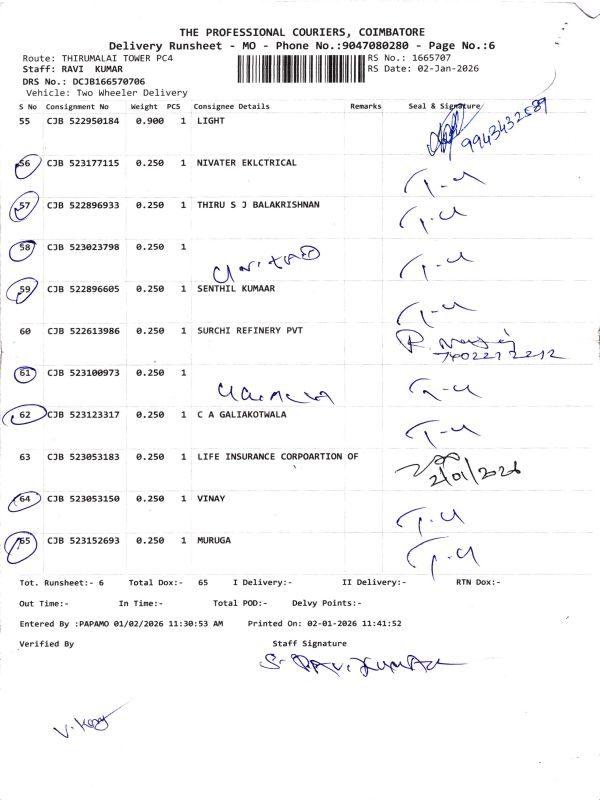 THE PROFESSIONAL COURIERS, COIMBATORE
Delivery Runsheet - MO - Phone No.:9047080280 - Page No.:6
Route: THIRUMALAI TOWER PC4 RS No.: 1665707
Staff: RAVI KUMAR RS Date: 02-Jan-2026
DRS No.: DCJB166570706
Vehicle: Two Wheeler Delivery
S No Consignment No Weight PCS Consignee Details Remarks Seal & Signature
55 CJB 522950184 0.900 1 LIGHT
9943432589
56 CJB 523177115 0.250 1 NIVATER EKLCTRICAL
57 CJB 522896933 0.250 1 THIRU S J BALAKRISHNAN
58 CJB 523023798 0.250 1
59 CJB 522896605 0.250 1 SENTHIL KUMAAR
60 CJB 522613986 0.250 1 SURCHI REFINERY PVT
61 CJB 523100973 0.250 1
62 CJB 523123317 0.250 1 C A GALIAKOTWALA
63 CJB 523053183 0.250 1 LIFE INSURANCE CORPOARTION OF
2/01/2026
64 CJB 523053150 0.250 1 VINAY
65 CJB 523152693 0.250 1 MURUGA
Tot. Runsheet:- 6 Total Dox:- 65 I Delivery:- II Delivery:- RTN Dox:-
Out Time:- In Time:- Total POD:- Delvy Points:-
Entered By :PAPAMO 01/02/2026 11:30:53 AM Printed On: 02-01-2026 11:41:52
Verified By Staff Signature
S. RAVi KUMAR